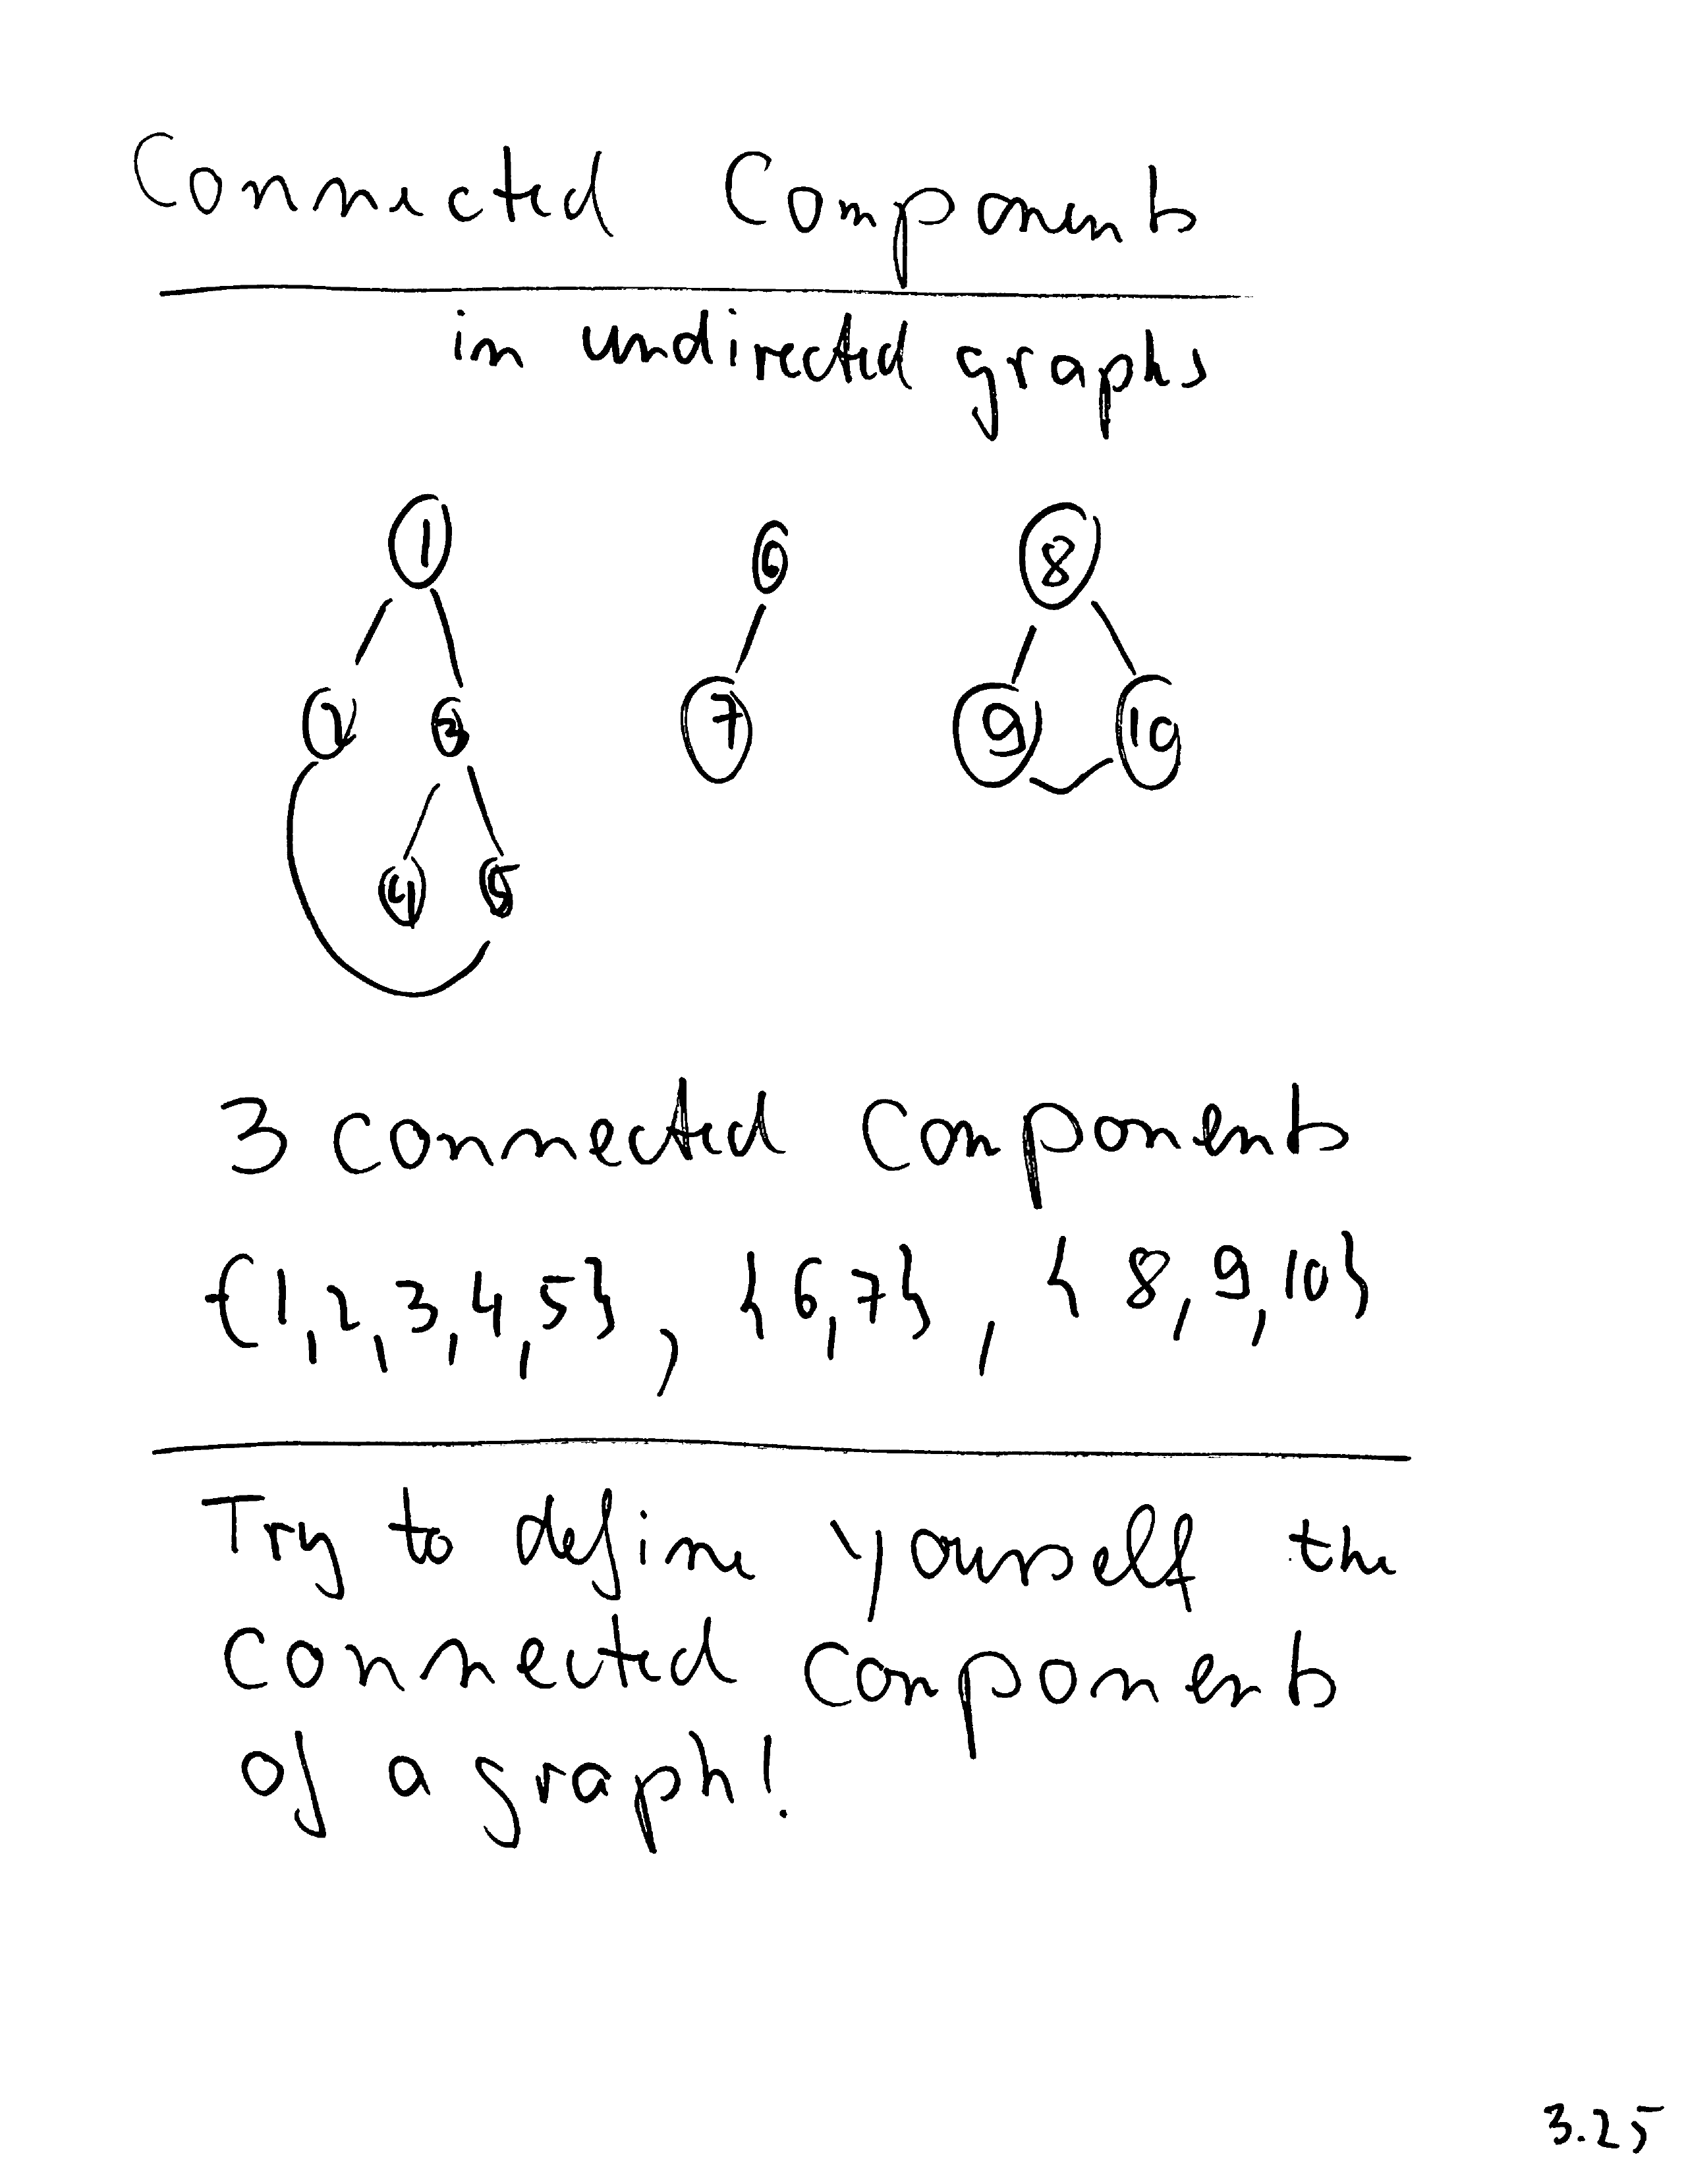 Connected Components
in undirected graphs
1 6 8
2 3 7 9 10
4 5
3 connected components
{1,2,3,4,5}, {6,7}, {8,9,10}
Try to define yourself the
connected components
of a graph!
3.25